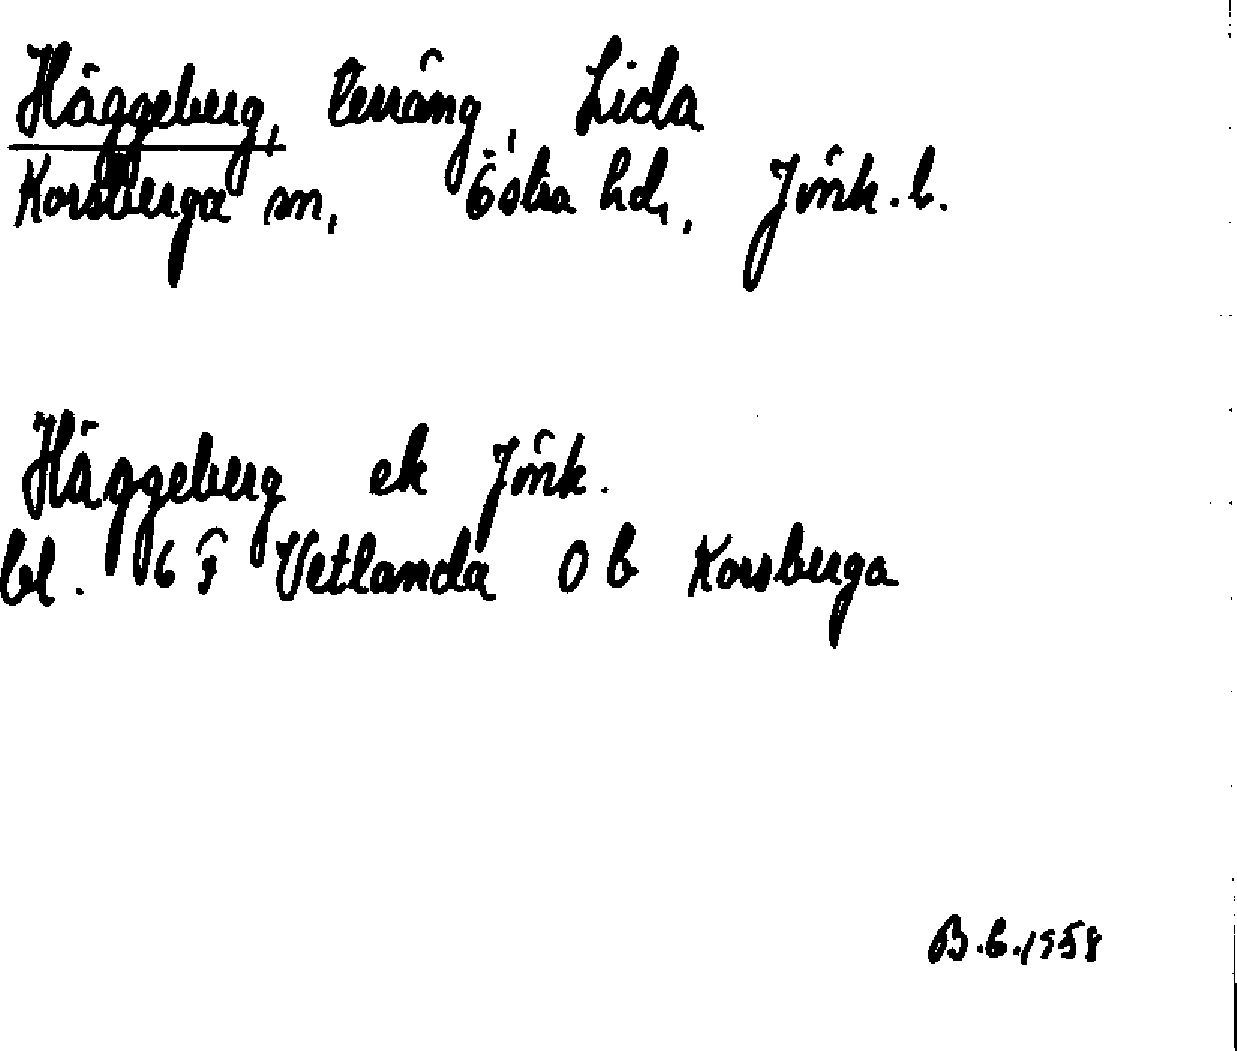 Häggeberg, terräng, Lida
Korsberga sn, Östra hd, Jönk.l.
Häggeberg ek Jönk.
bl. 6 F Vetlanda 0 b Korsberga
B.E.1958